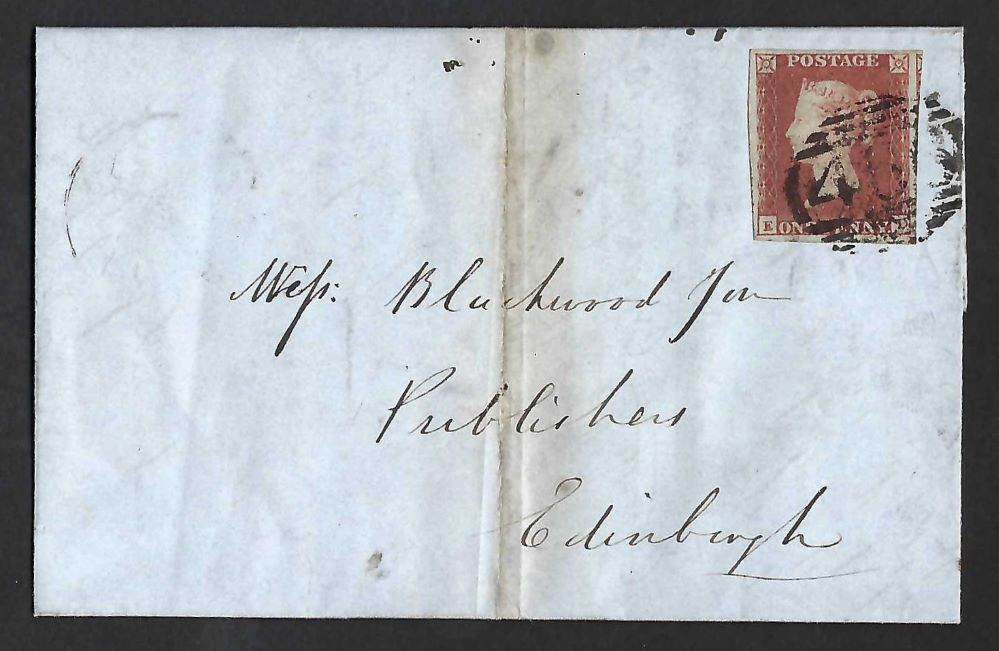 POSTAGE
E ONE PENNY
Mess: Blackwood Jon
Publishers
Edinburgh